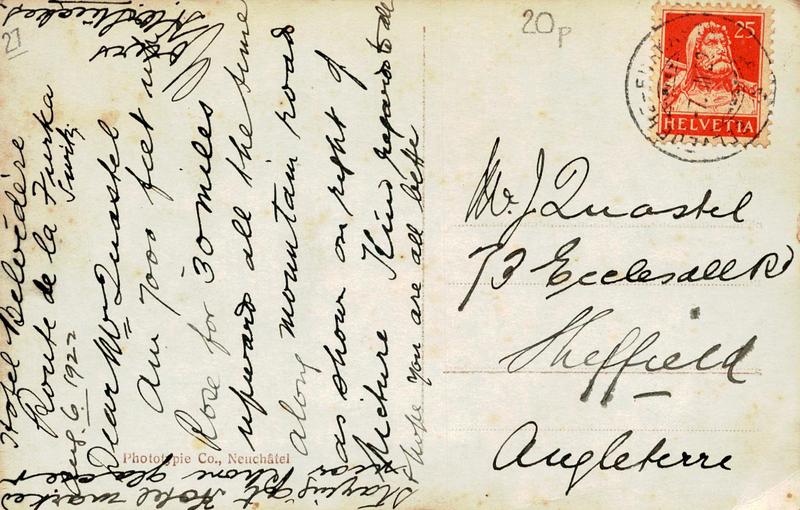 27
20p
25
HELVETIA
Hotel Belvédère
Route de la Furka
Switz
Aug. 6. 1922
Dear Mr Quastel
Am 7000 feet up
Rose for 30 miles
upward all the time
along mountain road
as shown on right of
picture Kind regards to all
I hope you are all better
Staying at Hotel marked
near Rhone glacier
Yours
Mr. J Quastel
73 Ecclesall Rd
Sheffield
Angleterre
Phototypie Co., Neuchâtel